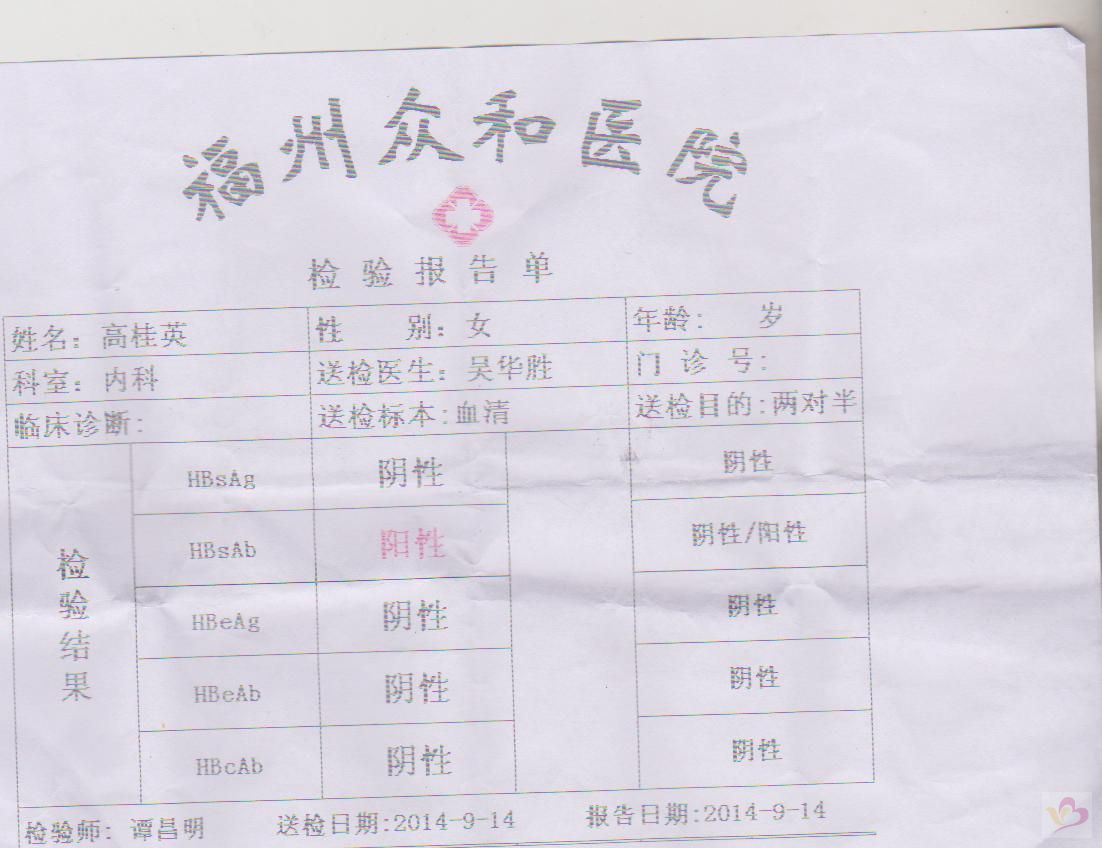 福州众和医院
检验报告单
姓名：高桂英 性 别：女 年龄： 岁
科室：内科 送检医生：吴华胜 门 诊 号：
临床诊断： 送检标本：血清 送检目的：两对半
检验结果
HBsAg 阴性 阴性
HBsAb 阳性 阴性/阳性
HBeAg 阴性 阴性
HBeAb 阴性 阴性
HBcAb 阴性 阴性
检验师：谭昌明 送检日期：2014-9-14 报告日期：2014-9-14